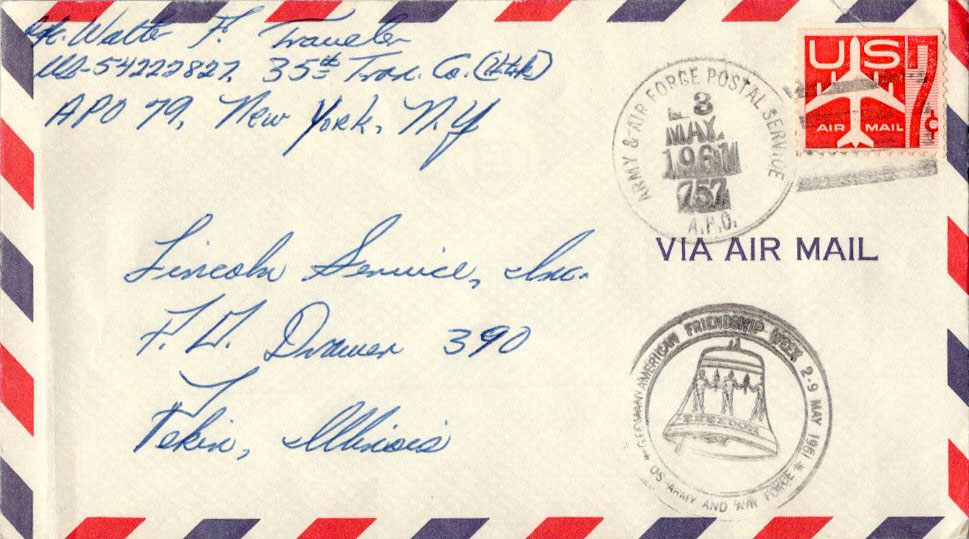 Walter F. Traweler
US-54222827, 35th Tran. Co.
APO 79, New York, N.Y
ARMY & AIR FORCE POSTAL SERVICE
3
MAY.
1961
757
A.P.O.
US
AIR MAIL
7¢
VIA AIR MAIL
Lincoln Service, Inc.
P.O. Drawer 390
Pekin, Illinois
GERMAN AMERICAN FRIENDSHIP WEEK 2-9 MAY 1961
FREEDOM
US ARMY AND AIR FORCE